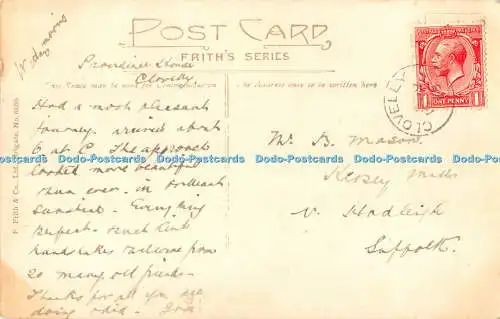 POST CARD
FRITH'S SERIES
Providence House
Clovelly
The Address only to be written here
Had a most pleasant
journey. arrived about
6 at C. The approach
looked more beautiful
than ever. in brilliant
sunshine. Everything
perfect. much kind
handshakes welcome from
so many old friends.
Thanks for all you are
doing
Mr B. Mason
Kersey Mills
Nr Hadleigh
Suffolk.
ONE PENNY
CLOVELLY
F. Frith & Co., Ltd., Reigate. No.
Dodo-Postcards Dodo-Postcards Dodo-Postcards Dodo-Postcards Dodo-Postcards Dodo-Postcards